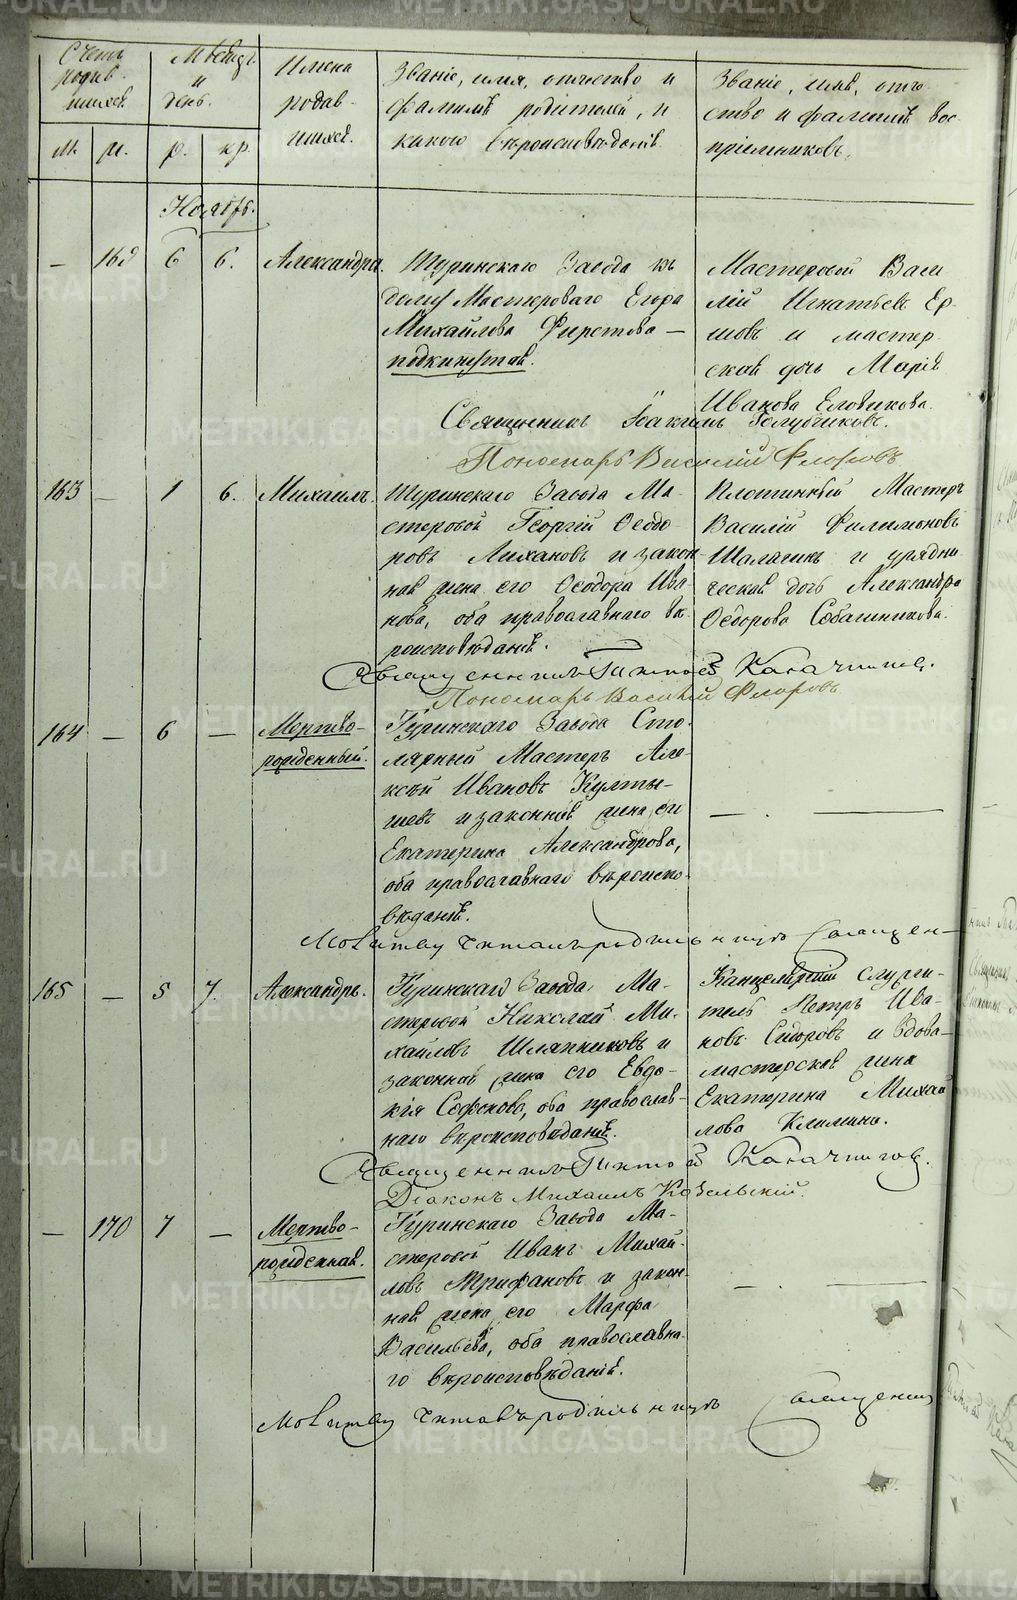 Счетъ родив-шихся.
Мѣсяцъ и день.
Имена родив-шихся.
Званіе, имя, отчество и
фамилія родителей, и
какого вѣроисповѣданія.
Званіе, имя, отче
ство и фамилія вос
пріемниковъ.
м. р. кр.
Ноябрь.
— 169 6 6. Александра.
Туринскаго Завода къ
дому Мастероваго Егора
Михайлова —
подкинутая.
Мастеровой Васи
лій Игнатьевъ Ер-
шовъ и мастер
ская дочь Марія
Иванова
Священникъ Іоакимъ Голубчиковъ.
Пономарь Василій Флоровъ
163 — 1 6. Михаилъ.
Туринскаго Завода Ма-
стеровой Георгій Ѳеодо
ровъ Лихановъ и закон-
ная жена его Ѳеодора Ива
нова, оба православнаго вѣ-
роисповѣданія.
Плотинный Мастеръ
Василій Филимоновъ
и урядни
ческая дочь Александра
Ѳедорова Собашникова.
Священникъ
Пономарь Василій Флоровъ
164 — 6 — Мертво-
рожденный.
Туринскаго Завода Сто
лярный Мастеръ Але-
ксѣй Ивановъ Култы-
шевъ и законная жена его
Екатерина Александрова,
оба православнаго вѣроиспо-
вѣданія.
— . —
Молитву читалъ родильницѣ Священ-
165 — 5 7. Александръ.
Туринскаго Завода Ма-
стеровой Николай Ми-
хайловъ Шляпниковъ и
законная жена его Евдо-
кія Софонова, оба православ-
наго вѣроисповѣданія.
Канцелярскій служи-
тель Петръ Ива-
новъ Сидоровъ и вдова-
мастерская жена
Екатерина Михай
лова Клишина.
Священникъ
Діаконъ Михаилъ Козельскій.
— 170 7 — Мертво-
рожденная.
Туринскаго Завода Ма-
стеровой Иванъ Михай-
ловъ Трифановъ и закон-
ная жена его Марфа
Васильева, оба православна-
го вѣроисповѣданія.
— . —
Молитву читалъ родильницѣ Священник
METRIKI.GASO-URAL.RU